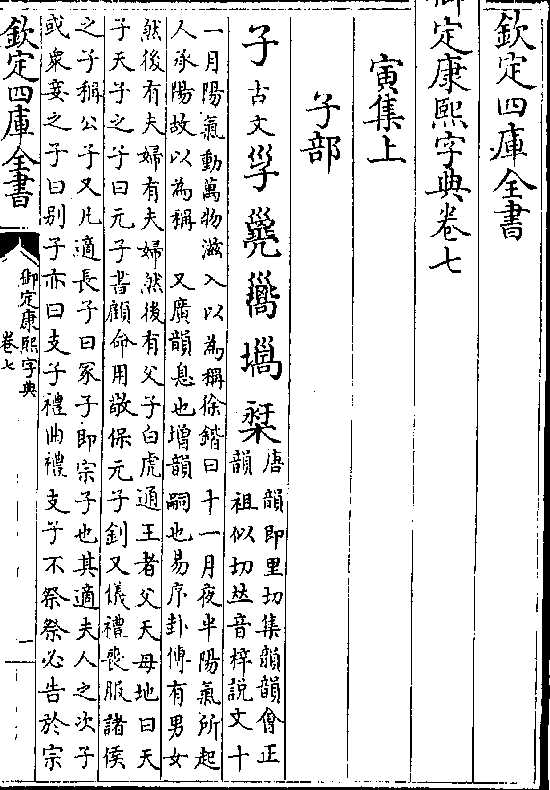 欽定四庫全書
御定康熙字典卷七
寅集上
子部
子古文㜽𢀇𢀈
唐韻即里切集韻韻會正
韻祖似切𠀤音梓說文十
一月陽氣動萬物滋入以為稱徐鍇曰十一月夜半陽氣所起
人承陽故以為稱　又廣韻息也增韻嗣也易序卦傳有男女
然後有夫婦有夫婦然後有父子白虎通王者父天母地曰天
子天子之子曰元子書顧命用敬保元子釗又儀禮喪服諸侯
之子稱公子又凡適長子曰冢子即宗子也其適夫人之次子
或衆妾之子曰别子亦曰支子禮曲禮支子不祭祭必告於宗
欽定四庫全書
御定康熙字典
卷七
一